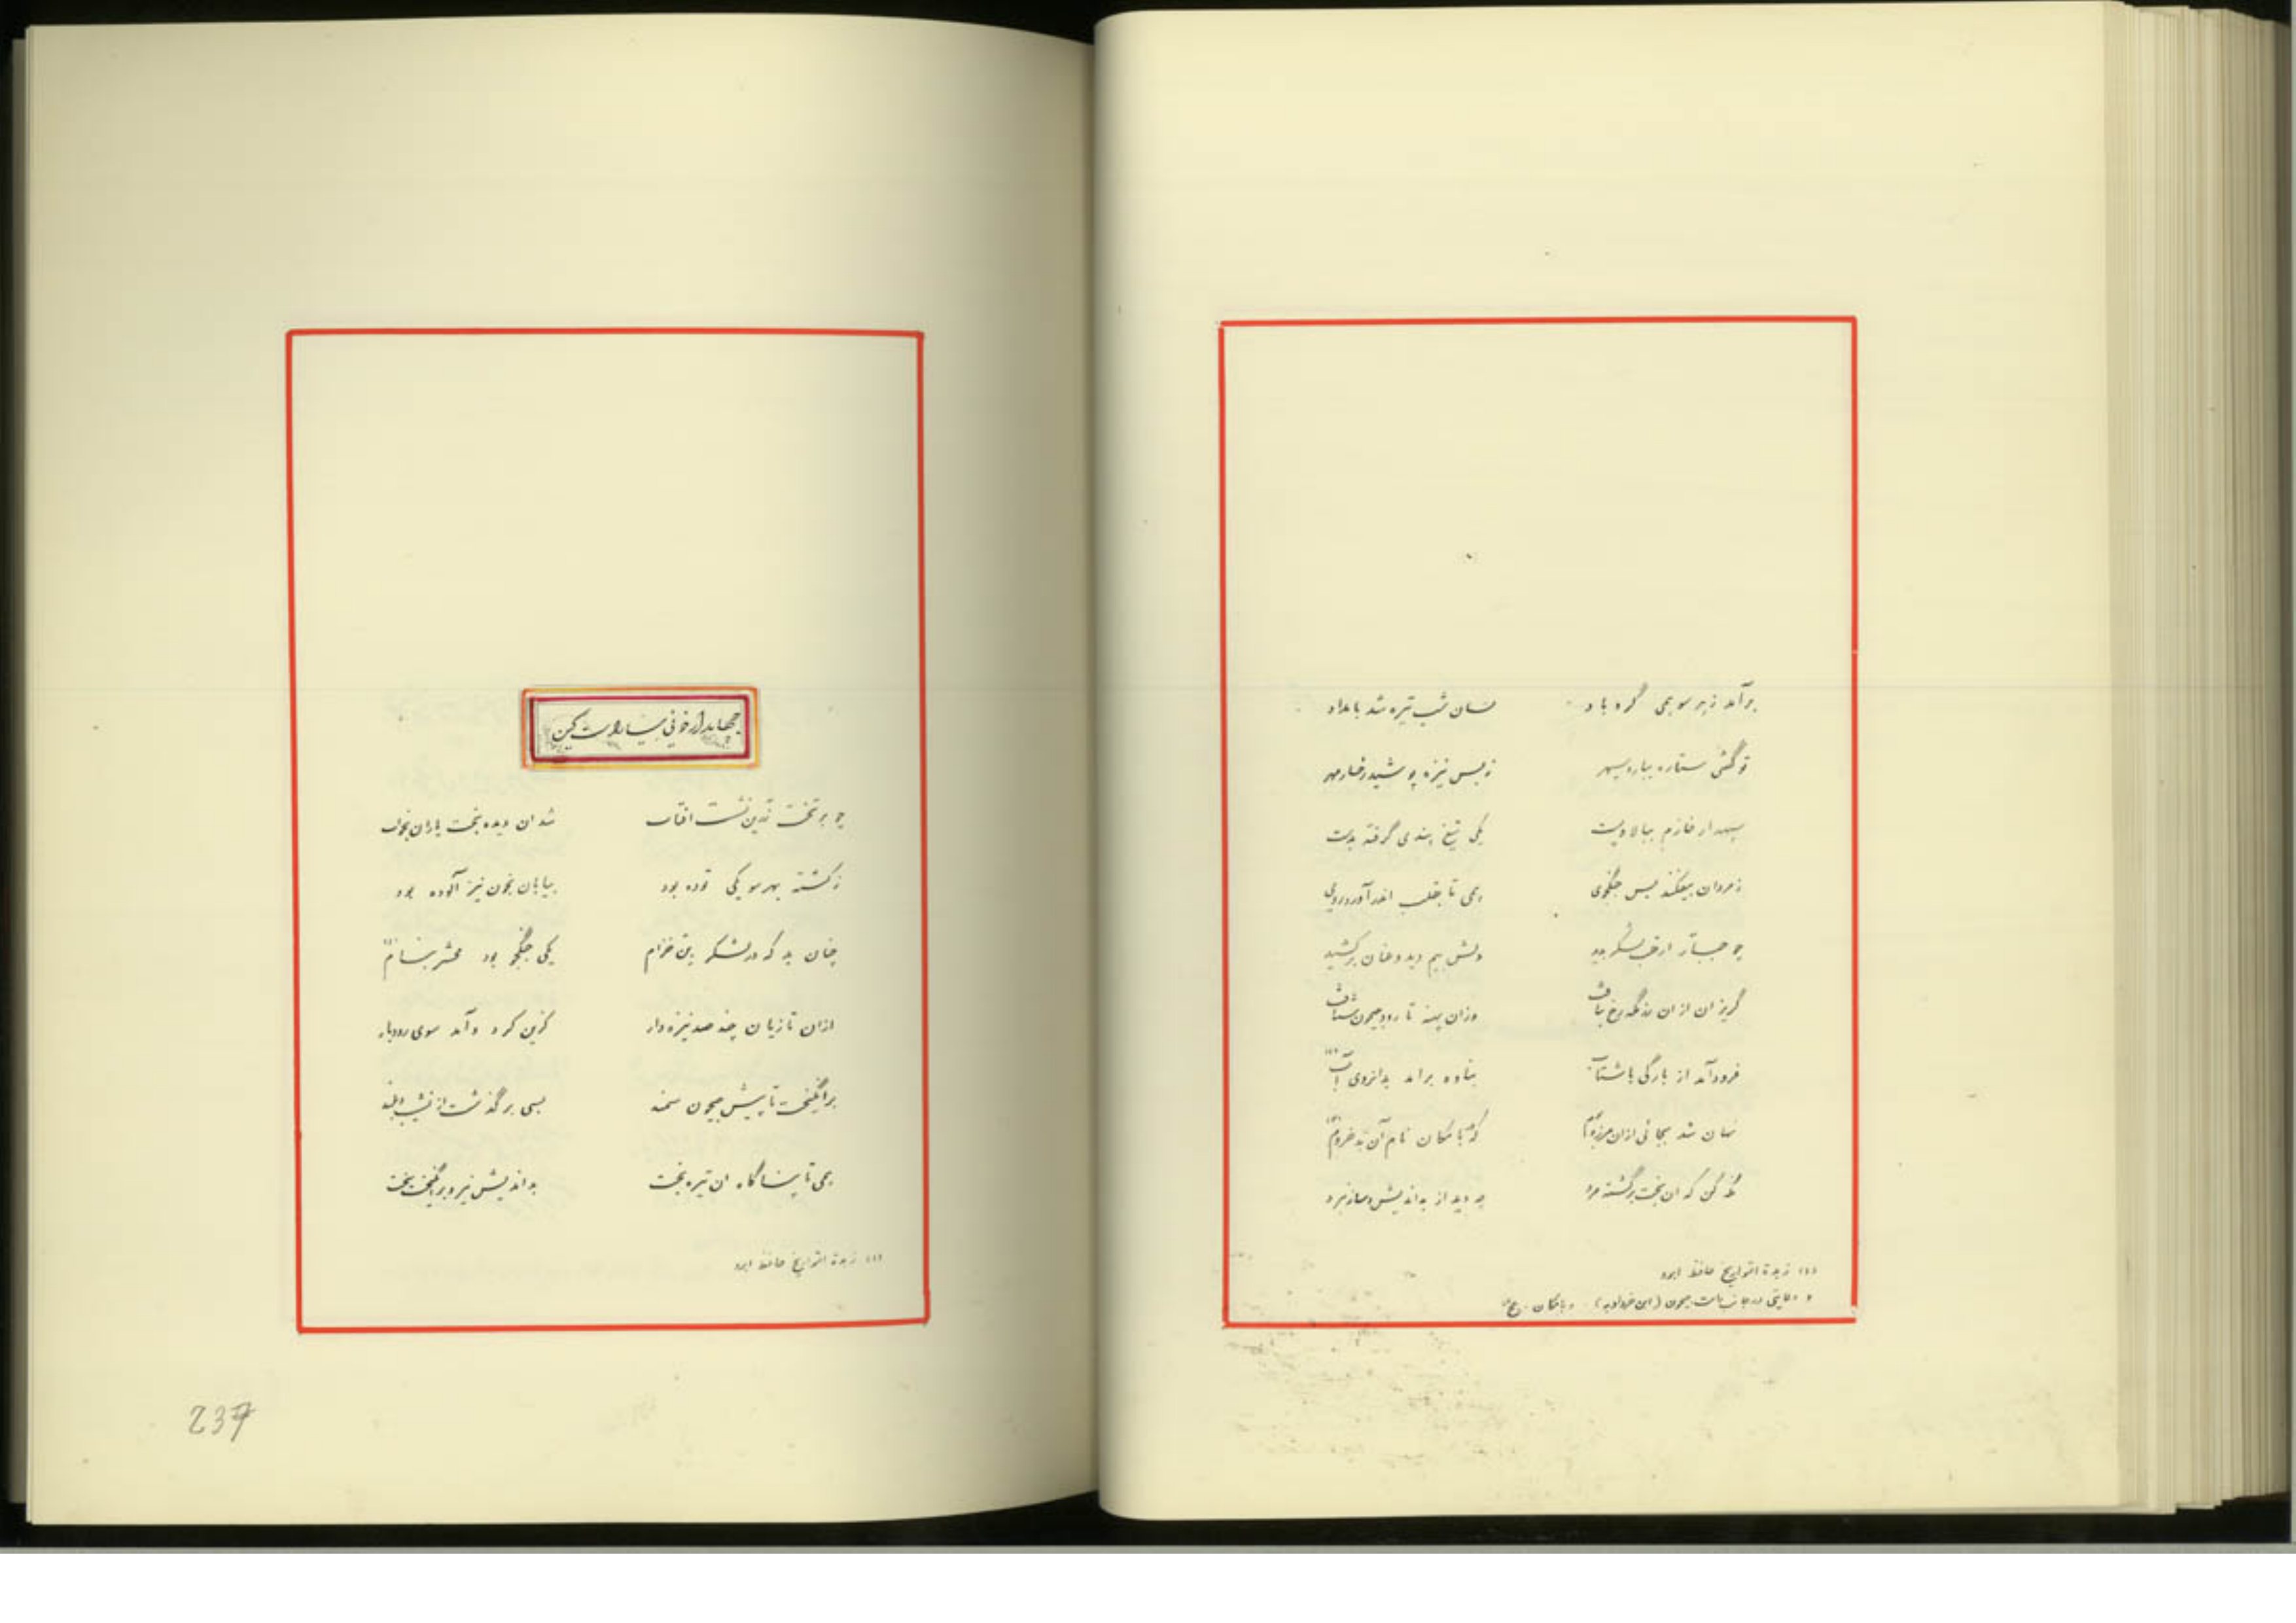 برآمد زهر سو همی گرد باد بسان شب تیره شد بامداد
تو گفتی ستاره ببارد سپهر ز بس نیزه پوشید رخسار مهر
سپهدار خازم ببالا و پست یکی تیغ هندی گرفته بدست
ز مردان بیفکند بس جنگجوی همی تا بقلب اندر آورد روی
چو جبار از قلب لشکر بدید دلش بیم دید و عنان برکشید
گریزان ازان رزمگه رخ بتافت وزان پهنه تا رود جیحون شتافت
فرود آمد از بارگی باشتاب پیاده برآمد بدانروی آب (۱)
نهان شد بجائی ازان مرز و بوم که بامکان نام آن بد
نگه کن که ان بخت برگشته مرد چه دید از بداندیش و ساز نبرد
(۱) زبدة التواریخ حافظ ابرو
جیحون (ابن خردادبه)
جهاندار خونی
چو بر تخت زرین نشست افتاب شد ان دیده بخت یاران بخواب
ز کشته بهر سو یکی توده بود بیابان بخون نیز آلوده بود
چنان بد که در لشکر خزام یکی جنگجو بود بنام (۱)
ازان تازیان چند صد نیزه دار گزین کرد و آمد سوی رودبار
برانگیخت تا پیش جیحون سمند بسی برگذشت از نشیب و بلند
همی تا پناگاه ان تیره بخت بداندیش نیرو برانگیخت سخت
(۱) زبدة التواریخ حافظ ابرو
237